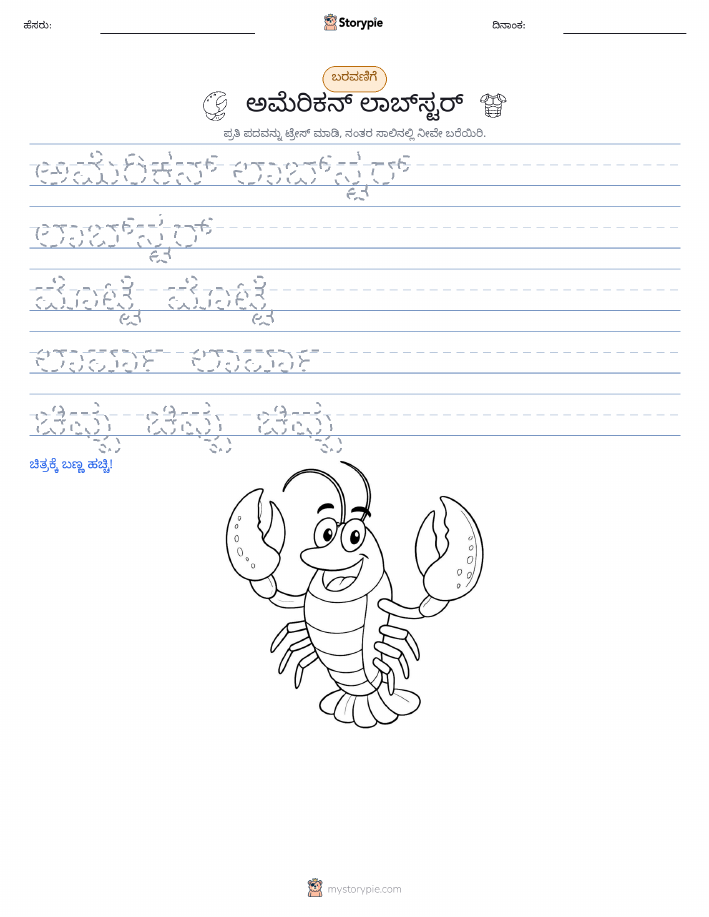 ಹೆಸರು:
Storypie
ದಿನಾಂಕ:
ಬರವಣಿಗೆ
ಅಮೆರಿಕನ್ ಲಾಬ್‌ಸ್ಟರ್
ಪ್ರತಿ ಪದವನ್ನು ಟ್ರೇಸ್ ಮಾಡಿ, ನಂತರ ಸಾಲಿನಲ್ಲಿ ನೀವೇ ಬರೆಯಿರಿ.
ಅಮೆರಿಕನ್ ಲಾಬ್‌ಸ್ಟರ್
ಲಾಬ್‌ಸ್ಟರ್
ಮೊಟ್ಟೆ ಮೊಟ್ಟೆ
ಲಾರ್ವಾ ಲಾರ್ವಾ
ಚಿಪ್ಪು ಚಿಪ್ಪು ಚಿಪ್ಪು
ಚಿತ್ರಕ್ಕೆ ಬಣ್ಣ ಹಚ್ಚಿ!
mystorypie.com